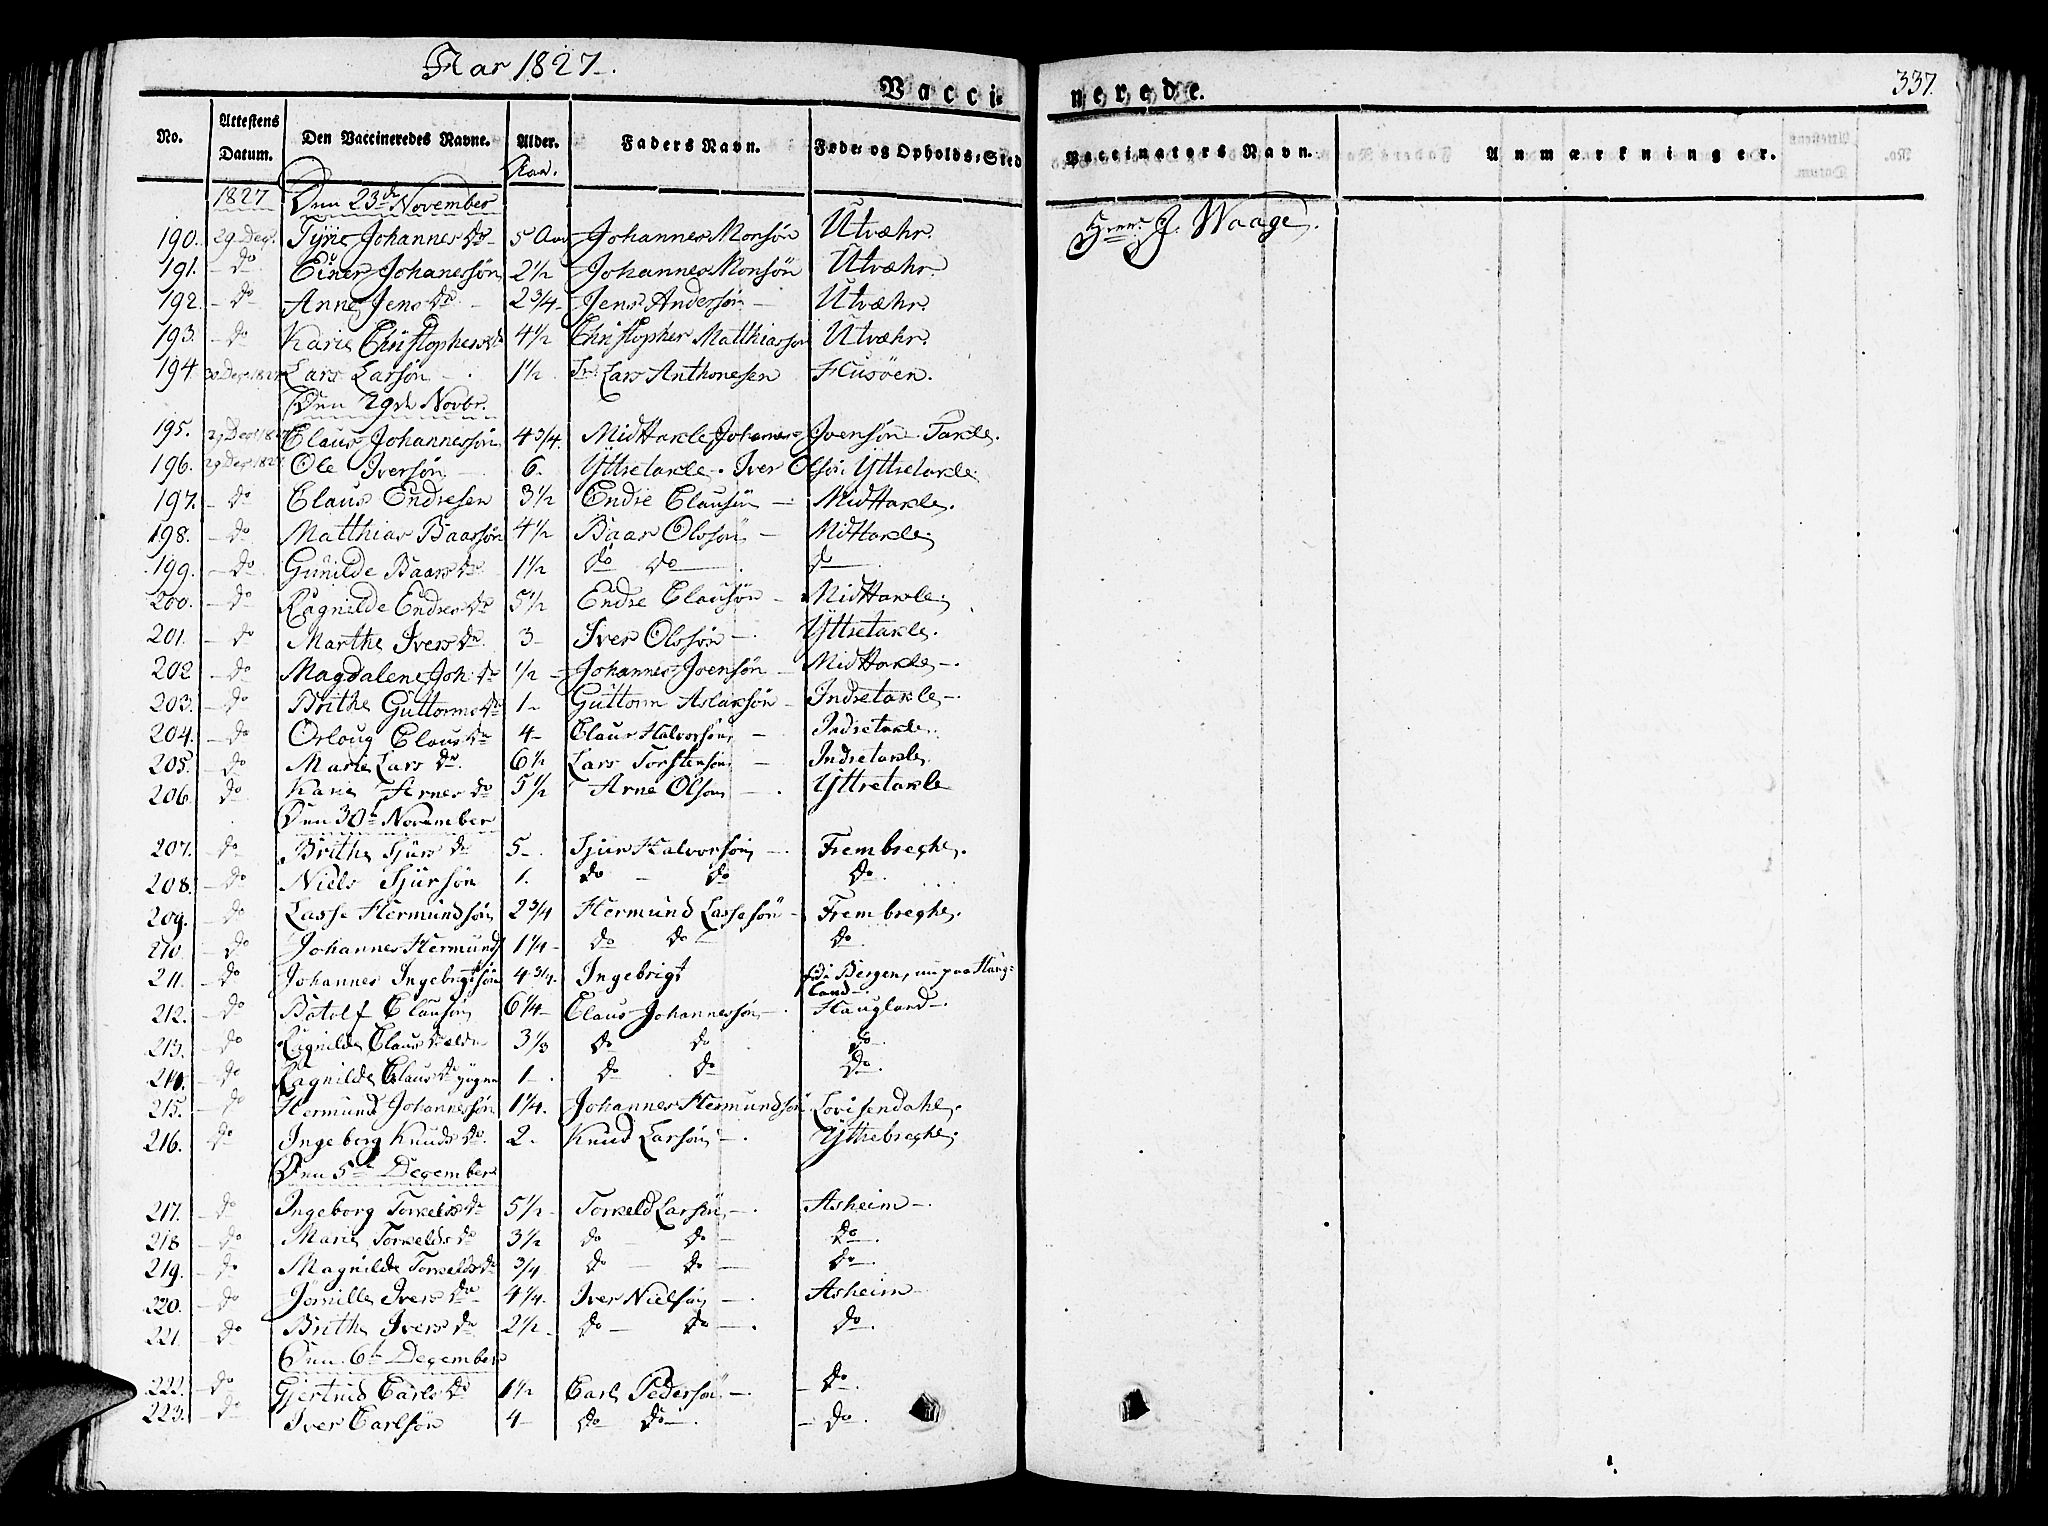 Aar 1827.
Vacci-
nerede.
337.
No. Attestens Datum. Den Vaccineredes Navne. Alder. Faders Navn. Føde- og Opholds-Sted Vaccinators Navn. Anmærkninger.
Aar.
1827 Den 23de November
190. 29 Deç. Tÿrie Johannes Dr 5 Aar Johannes Monsøn Utvæhr. Herr J. Waage.
191. - do Einer Johanessøn 2 1/2 Johannes Monsøn Utvæhr.
192. - do Anne Jens Dr - 2 3/4 Jens Andersøn - Utvæhr.
193. - do Karie Christophers Dr 4 1/2 Christopher Matthiassøn Utvæhr.
194 30 Deç 1827 Lars Larsøn - 1 1/2 Lars Anthonesen Husøen.
Den 29de Novbr.
195. 29 Deç 1827 Claus Johannessøn 4 3/4. Midttakle Johannes Joensøn Takle.
196. 29 Deç 1827 Ole Iversøn - 6. Ÿttretakle. Iver Olsøn Ÿttretakle
197. - do Claus Endresen 3 1/2 Endre Clausøn - Midttakle.
198. - do Matthias Baarsøn 4 1/2 Baar Olssøn - Midttakle.
199. - do Gunilde Baars Dr 1 1/2 do do do
200. - do Ragnilde Endres Dr 5 1/2 Endre Clausøn - Midttakle.
201. - do Marthe Ivers Dr 3 - Iver Olssøn - Ÿttretakle.
202 - do Magdalene Joh. Dr 1/2 - Johannes Joensøn - Midttakle -.
203. - do Brithe Guttorms Dr 1 - Guttorm Aslaksøn - Indretakle -.
204. - do Orloug Claus Dr 4 - Claus Halvorsøn - Indretakle.
205. - do Marie Lars Dr. 6 1/2 Lars Torstensøn - Indretakle.
206. do Karie Arnes Dr 5 1/2 Arne Olsøn - Ÿttretakle
Den 30te November
207. - do Brithe Sjurs Dr 5 -. Sjur Halvorsøn - Frembreghe.
208. - do Niels Sjursøn 1. do - do do.
209. - do Lasse Hermundsøn 2 3/4 Hermund Lassesøn - Frembreghe.
210 - do Johannes Hermunds 1 1/4 - do do do.
211. - do Johannes Ingebrigtsøn 4 3/4. Ingebrigt fød i Bergen, nu paa Haug-
land -.
212. - do Botolf Clausøn 6 1/4 - Claus Johannessøn -. Haugland -.
213. - do Ragnilde Claus Dr eldre 3 1/3 do do do.
214. - do Ragnilde Claus Dr yngre 1 -. do do do.
215. - do Hermund Johannessøn 1 1/4. Johannes Hermundsøn Lovisendahl.
216. - do Ingeborg Knuds Dr. 2. Knud Larsøn -. Ÿttrebreghe.
Den 5te Deçember
217. - do Ingeborg Torkelds Dr 5 1/2 - Torkeld Larsøn -. Asheim -.
218 - do Marie Torkelds Dr 3 1/2 do - do - do -.
219. - do Magnilde Torkelds Dr 3/4 do - do - do -.
220. - do Jernille Ivers Dr 4 1/4. Iver Nielsøn -. Asheim -
221 do Brithe Ivers Dr 2 1/2 - do - do -. do.
Den 6te Deçember
222. - do Gjertrud Carls Dr 1 1/2 Carl Pedersøn -. - do.
223. - do Iver Carlsøn 4 - do do -. - do.